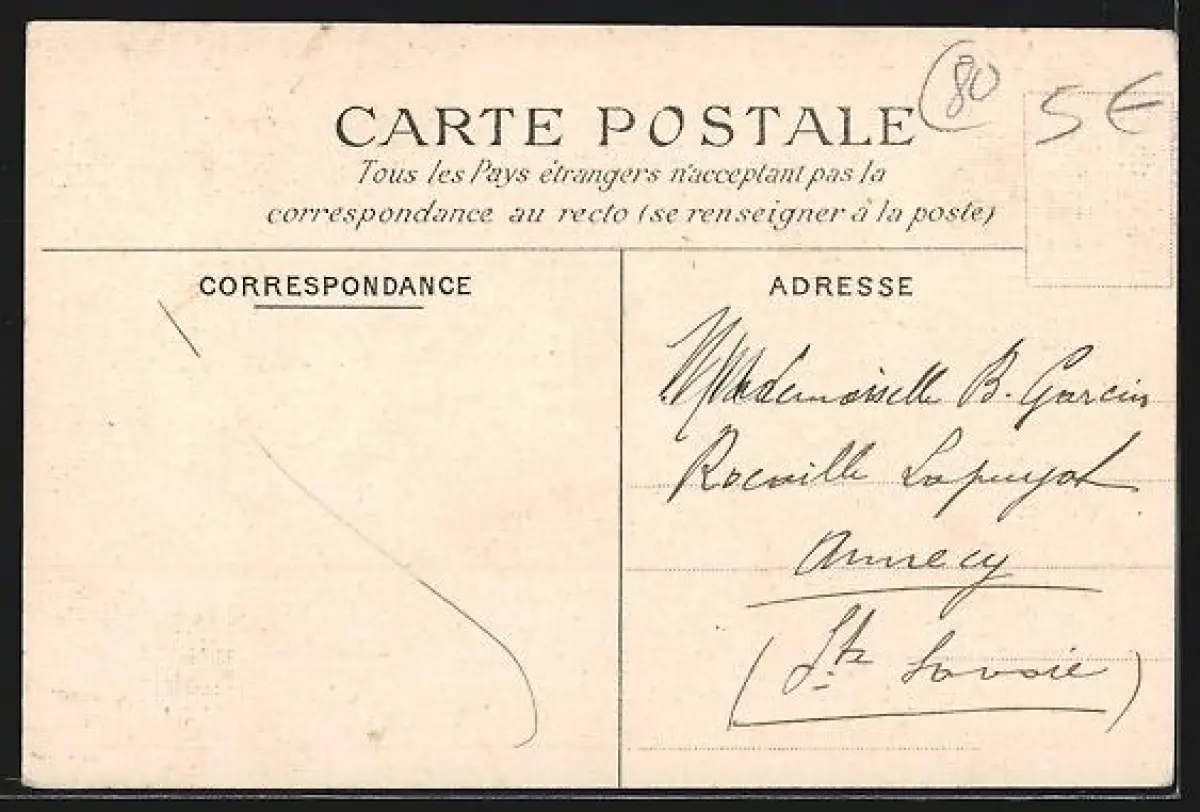 (80
5 €
CARTE POSTALE
Tous les Pays étrangers n'acceptant pas la
correspondance au recto (se renseigner à la poste)
CORRESPONDANCE
ADRESSE
Mademoiselle B. Garcin
Annecy
(Hte Savoie)